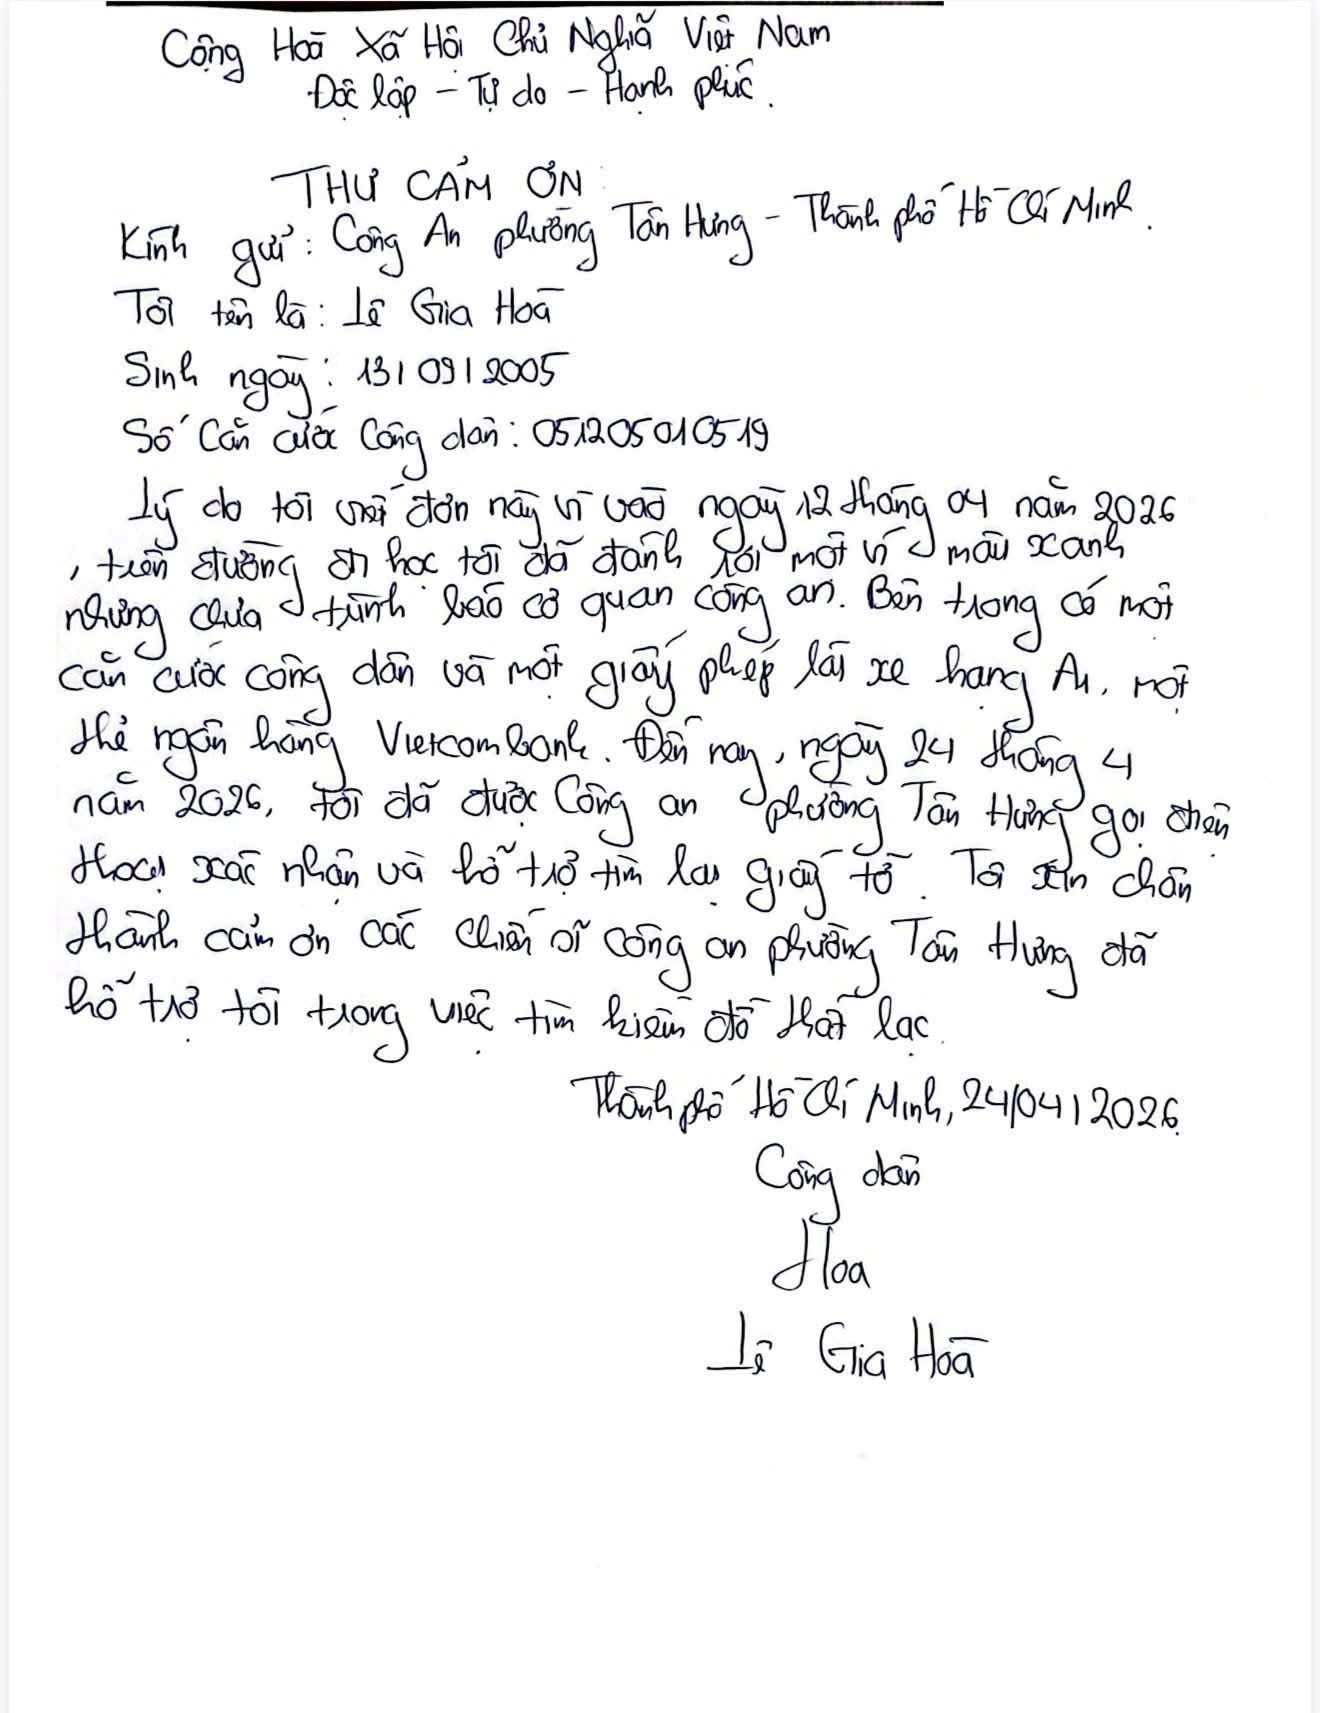 Cộng Hoà Xã Hội Chủ Nghĩa Việt Nam
Độc lập - Tự do - Hạnh phúc.
THƯ CẢM ƠN
Kính gửi: Công An phường Tân Hưng - Thành phố Hồ Chí Minh.
Tôi tên là: Lê Gia Hoà
Sinh ngày: 13/09/2005
Số Căn cước Công dân: 051205010519
Lý do tôi viết đơn này vì vào ngày 12 tháng 04 năm 2026
, trên đường đi học tôi đã đánh rơi một ví màu xanh
nhưng chưa trình báo cơ quan công an. Bên trong có một
căn cước công dân và một giấy phép lái xe hạng A1, một
thẻ ngân hàng Vietcombank. Đến nay, ngày 24 tháng 4
năm 2026, tôi đã được Công an phường Tân Hưng gọi điện
thoại xác nhận và hỗ trợ tìm lại giấy tờ. Tôi xin chân
thành cảm ơn các chiến sĩ công an phường Tân Hưng đã
hỗ trợ tôi trong việc tìm kiếm đồ thất lạc.
Thành phố Hồ Chí Minh, 24/04/2026.
Công dân
Hoa
Lê Gia Hoà